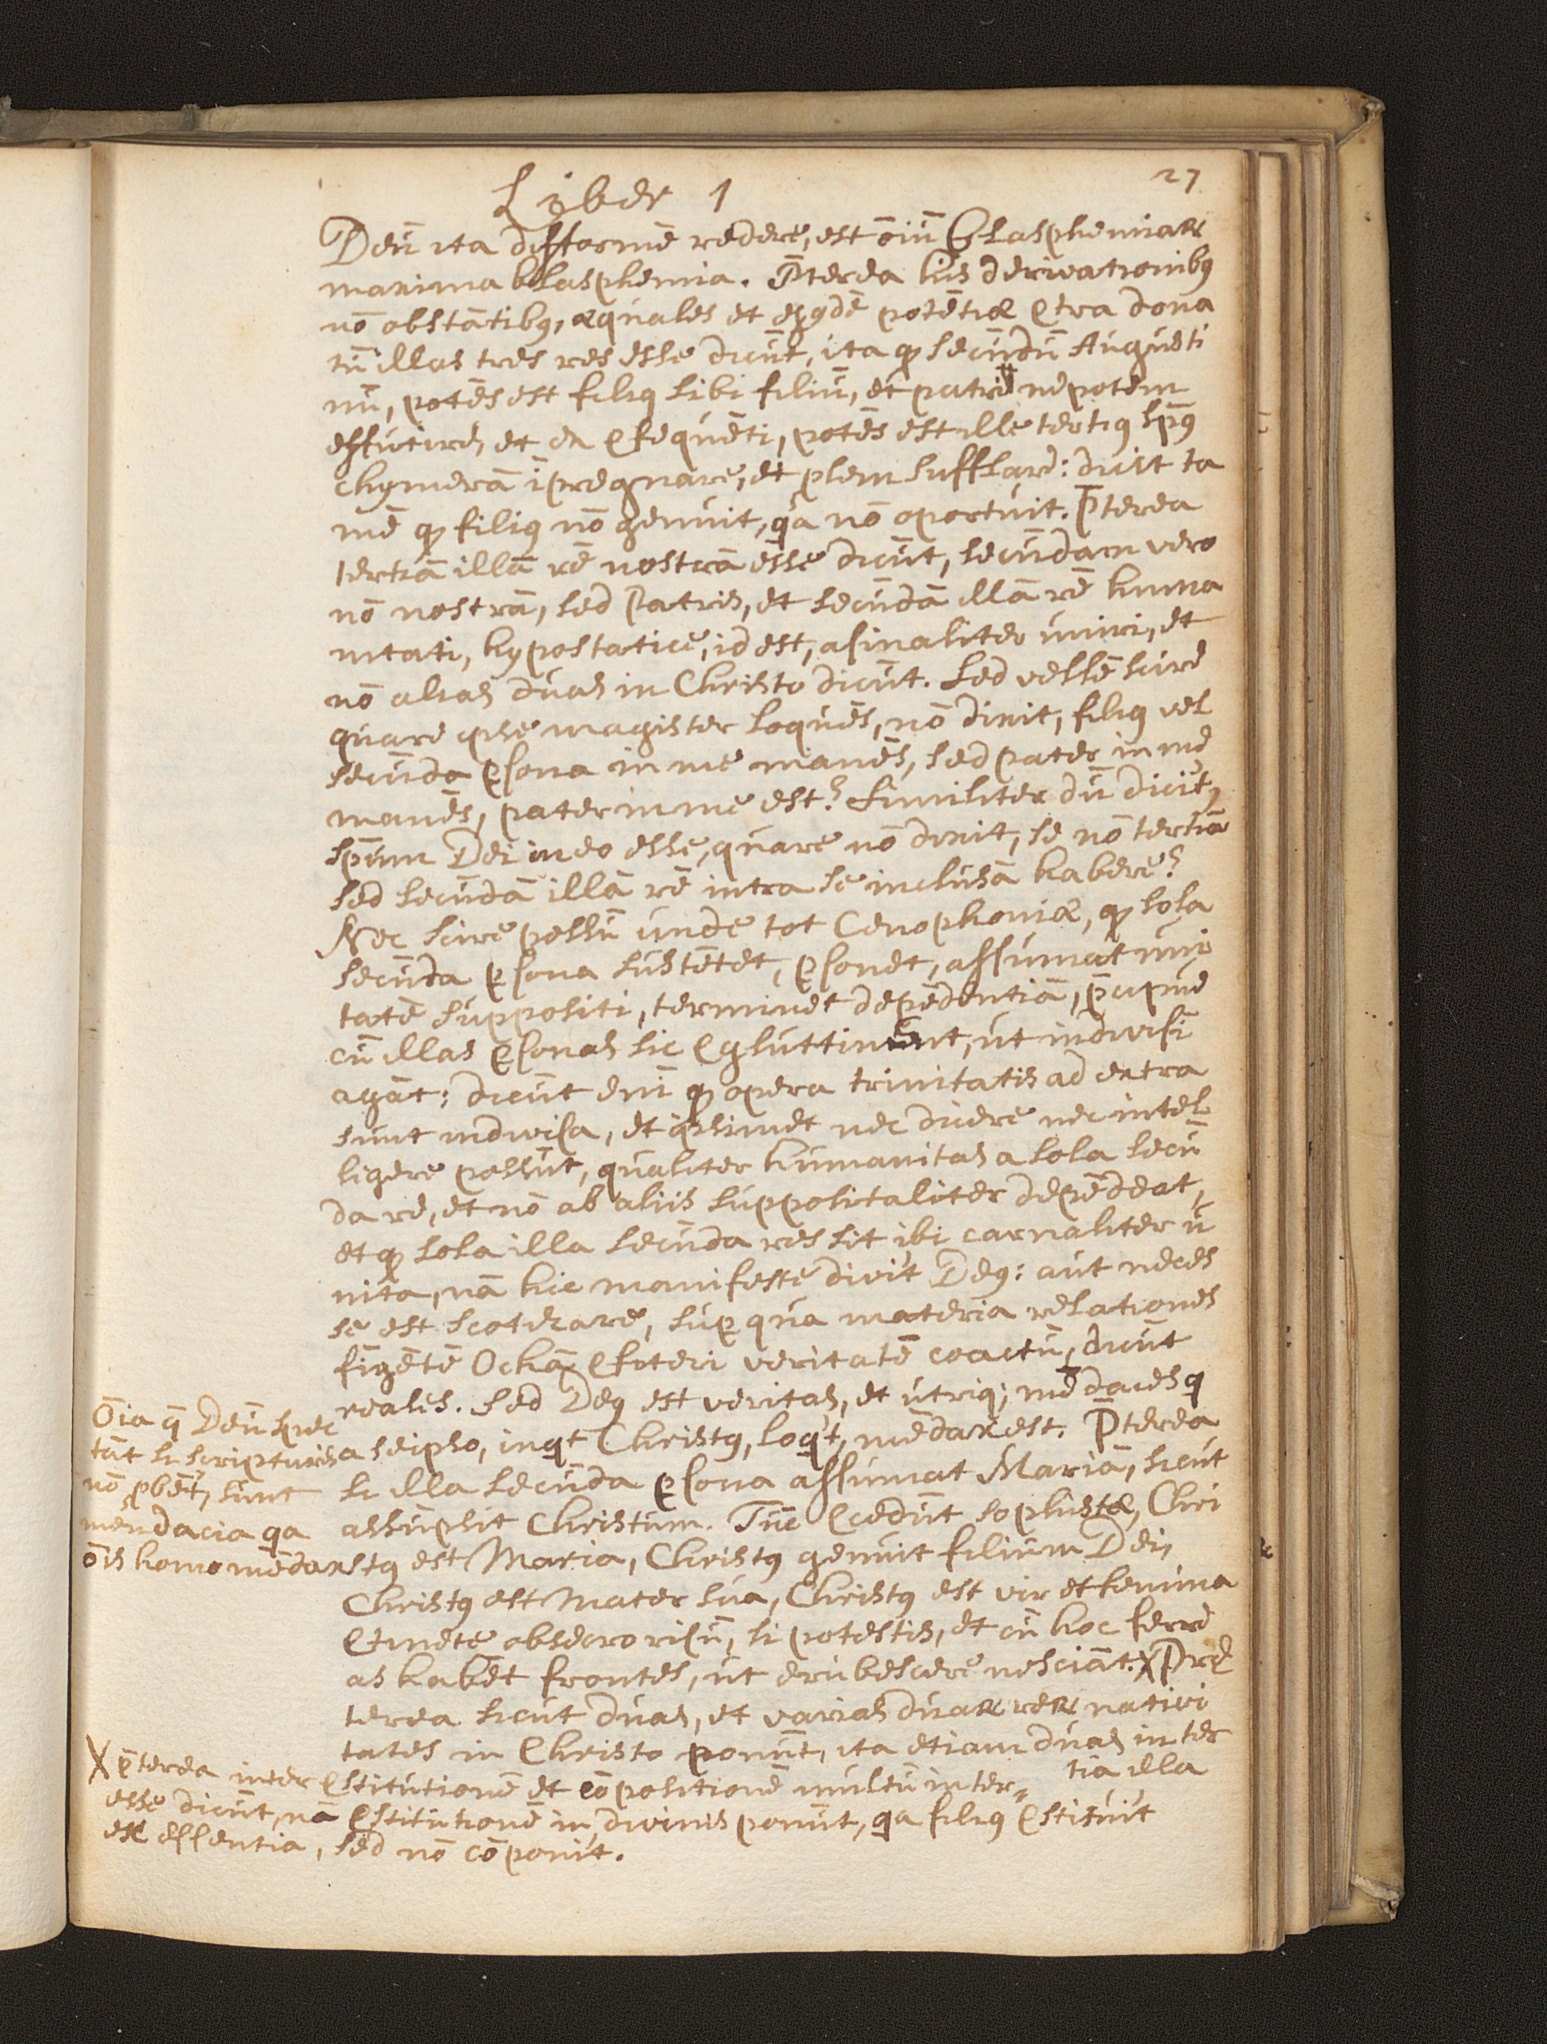 Liber 1
27
Deū ita difformē reddere, est ōiū Blasphemiaꝝ
maxima blasphemia. P̄terea his derivationibꝰ
nō obstātibꝰ, æquales et eiꝰdē potētiæ ꝯtra dona
tū illas tres res esse dicūt, ita ꝙ secūdū Augusti
nū, potēs est filiꝰ sibi filiū, et patri nepotem
effutire, et ex ꝯsequēti, potēs est ille tertiꝰ sp̄ꝰ
chymerā īpregnare, et ꝓlem sufflare: dicit ta
mē ꝙ filiꝰ nō genuit, qa nō oportuit. P̄terea
tertiā illā rē nostrā esse dicūt, secūdam vero
nō nostrā, sed Patris, et secūdā illā rē huma
nitati, hypostatice, id est, asinaliter uniri, et
nō alias duas in Christo dicūt. Sed vellē scire
quare ipse magister loquēs, nō dixit, filiꝰ vel
secūda ꝑsona in me manēs, sed pater in me
manēs, pater in me est? Similiter dū dicit,
sp̄um Dei in eo esse, quare nō dixit, se nō tertiā
sed secūdā illā rē intra se inclusā habere?
Nec scire possū unde tot Cenophoniæ, ꝙ sola
secūda ꝑsona sustētet, ꝑsonet, assumat uni
tatē suppositi, terminet depēdentiā, p̄cipue
cū illas ꝑsonas sic ꝯgluttinent, ut indivisi
agāt: dicūt enī ꝙ opera trinitatis ad extra
sunt indivisa, et ipsimet nec dicere nec intel
ligere possūt, qualiter humanitas a sola secū
da re, et nō ab aliis suppositaliter depēdeat,
et ꝙ sola illa secūda res sit ibi carnaliter u
nita, nā hic manifeste divit Deꝰ: aut neces
se est scotizare, suꝑ qua materia relationes
fīgētē Ockā ꝯfiteri veritatē coactū, dicūt
reales. Sed Deꝰ est veritas, et utriqꝫ mēdaces q
a seipso, inqt Christꝰ, loqt, mēdax est. P̄terea
si illa secūda ꝑsona assumat Mariā, sicut
assūpsit Christum. Tūc ꝯcedūt sophistæ, Chri
stꝰ est Maria, Christꝰ genuit filium Dei,
Christꝰ est Mater sua, Christꝰ est vir et femina
ꝯtinete obsecro risū, si potestis, et cū hoc ferre
as habēt frontes, ut erubescere nesciāt. X Præ
terea sicut duas, et varias duaꝝ reꝝ nativi
tates in Christo ponūt, ita etiam duas inter
tia illa
Ōia q̄ Deū spec
tāt si scripturis
nō ꝓbēt, sunt
mendacia qa
ōis homo mēdax
X p̄terea inter ꝯstitutionē et cōpositionē multū inter-
esse dicūt, nā ꝯstitutionē in divinis ponūt, qa filiꝰ ꝯstituit
ex essentia, sed nō cōponit.